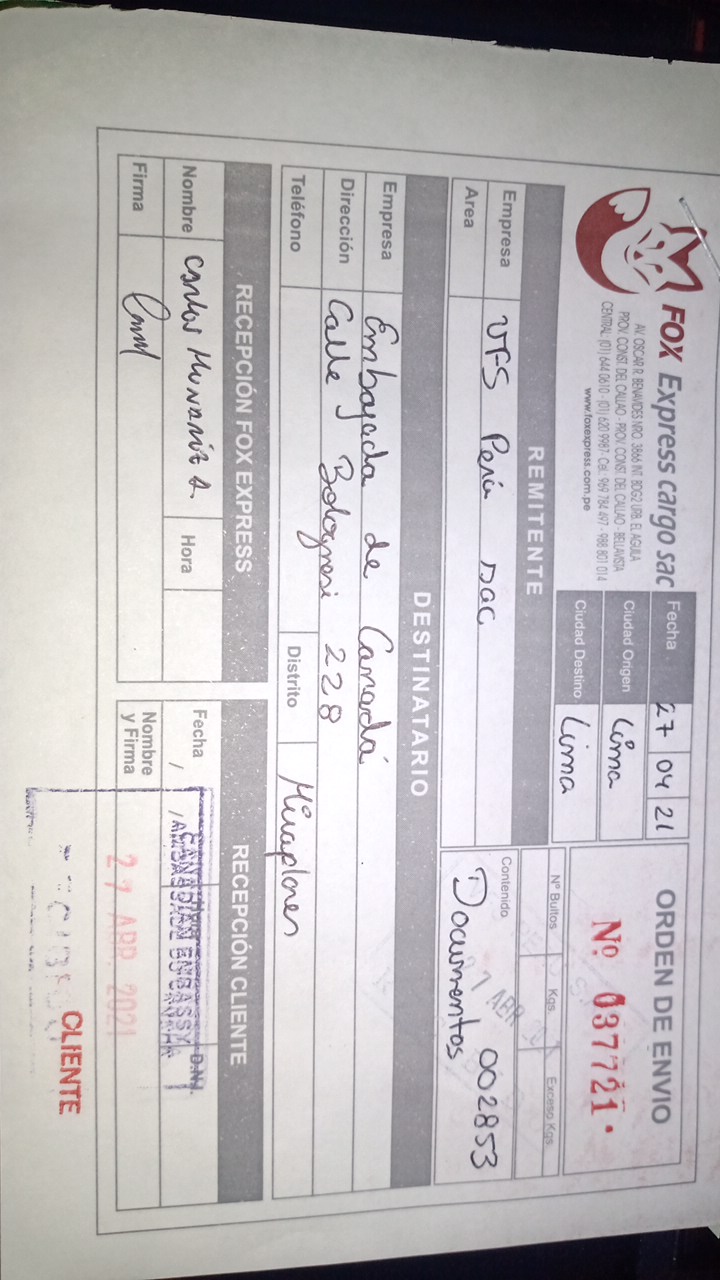 FOX Express cargo sac
AV. OSCAR R. BENAVIDES NRO. 3866 INT. BDG2 URB. EL AGUILA
PROV. CONST. DEL CALLAO - PROV. CONST. DEL CALLAO - BELLAVISTA
CENTRAL: (01) 644 0610 - (01) 620 9987 - Cel.: 969 784 497 - 988 801 014
www.foxexpress.com.pe
Fecha 27 04 21
Ciudad Origen Lima
Ciudad Destino Lima
ORDEN DE ENVIO
Nº 037721
REMITENTE
Empresa VFS Perú SAC
Area
Nº Bultos Kgs. Exceso Kgs.
Contenido 002853
Documentos
DESTINATARIO
Empresa Embajada de Canadá
Dirección Calle Bolognesi 228
Teléfono Distrito Miraflores
RECEPCIÓN FOX EXPRESS
Nombre Carlos Hora
Firma
RECEPCIÓN CLIENTE
Fecha / / D.N.I.
CANADIAN EMBASSY
Nombre y Firma
27 ABR. 2021
CLIENTE